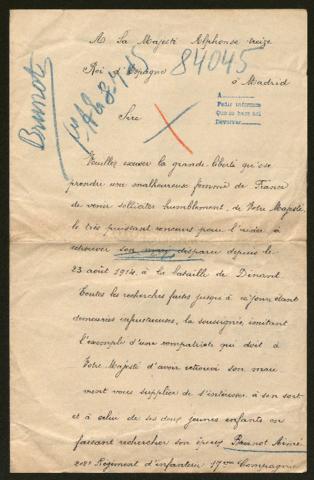 A Sa Majesté Alphonse treize
Roi d'Espagne
84045
à Madrid
Brunot
18-3-15
A
Pedir informes
Que se hace así
Devolver
Sire
Veuillez excuser la grande liberté qu'ose
prendre une malheureuse femme de France
de venir solliciter humblement, de Votre Majesté,
le très puissant concours pour l'aider à
retrouver son mari disparu depuis le
23 août 1914, à la bataille de Dinant
Toutes les recherches faites jusqu'à ce jour, étant
demeurées infructueuses, la soussignée, imitant
l'exemple d'une compatriote qui doit à
Votre Majesté d'avoir retrouvé son mari
vient vous supplier de s'intéresser à son sort
et à celui de ses deux jeunes enfants en
faisant rechercher son époux Brunot Aimé
208e Régiment d'infanterie 17me Compagnie